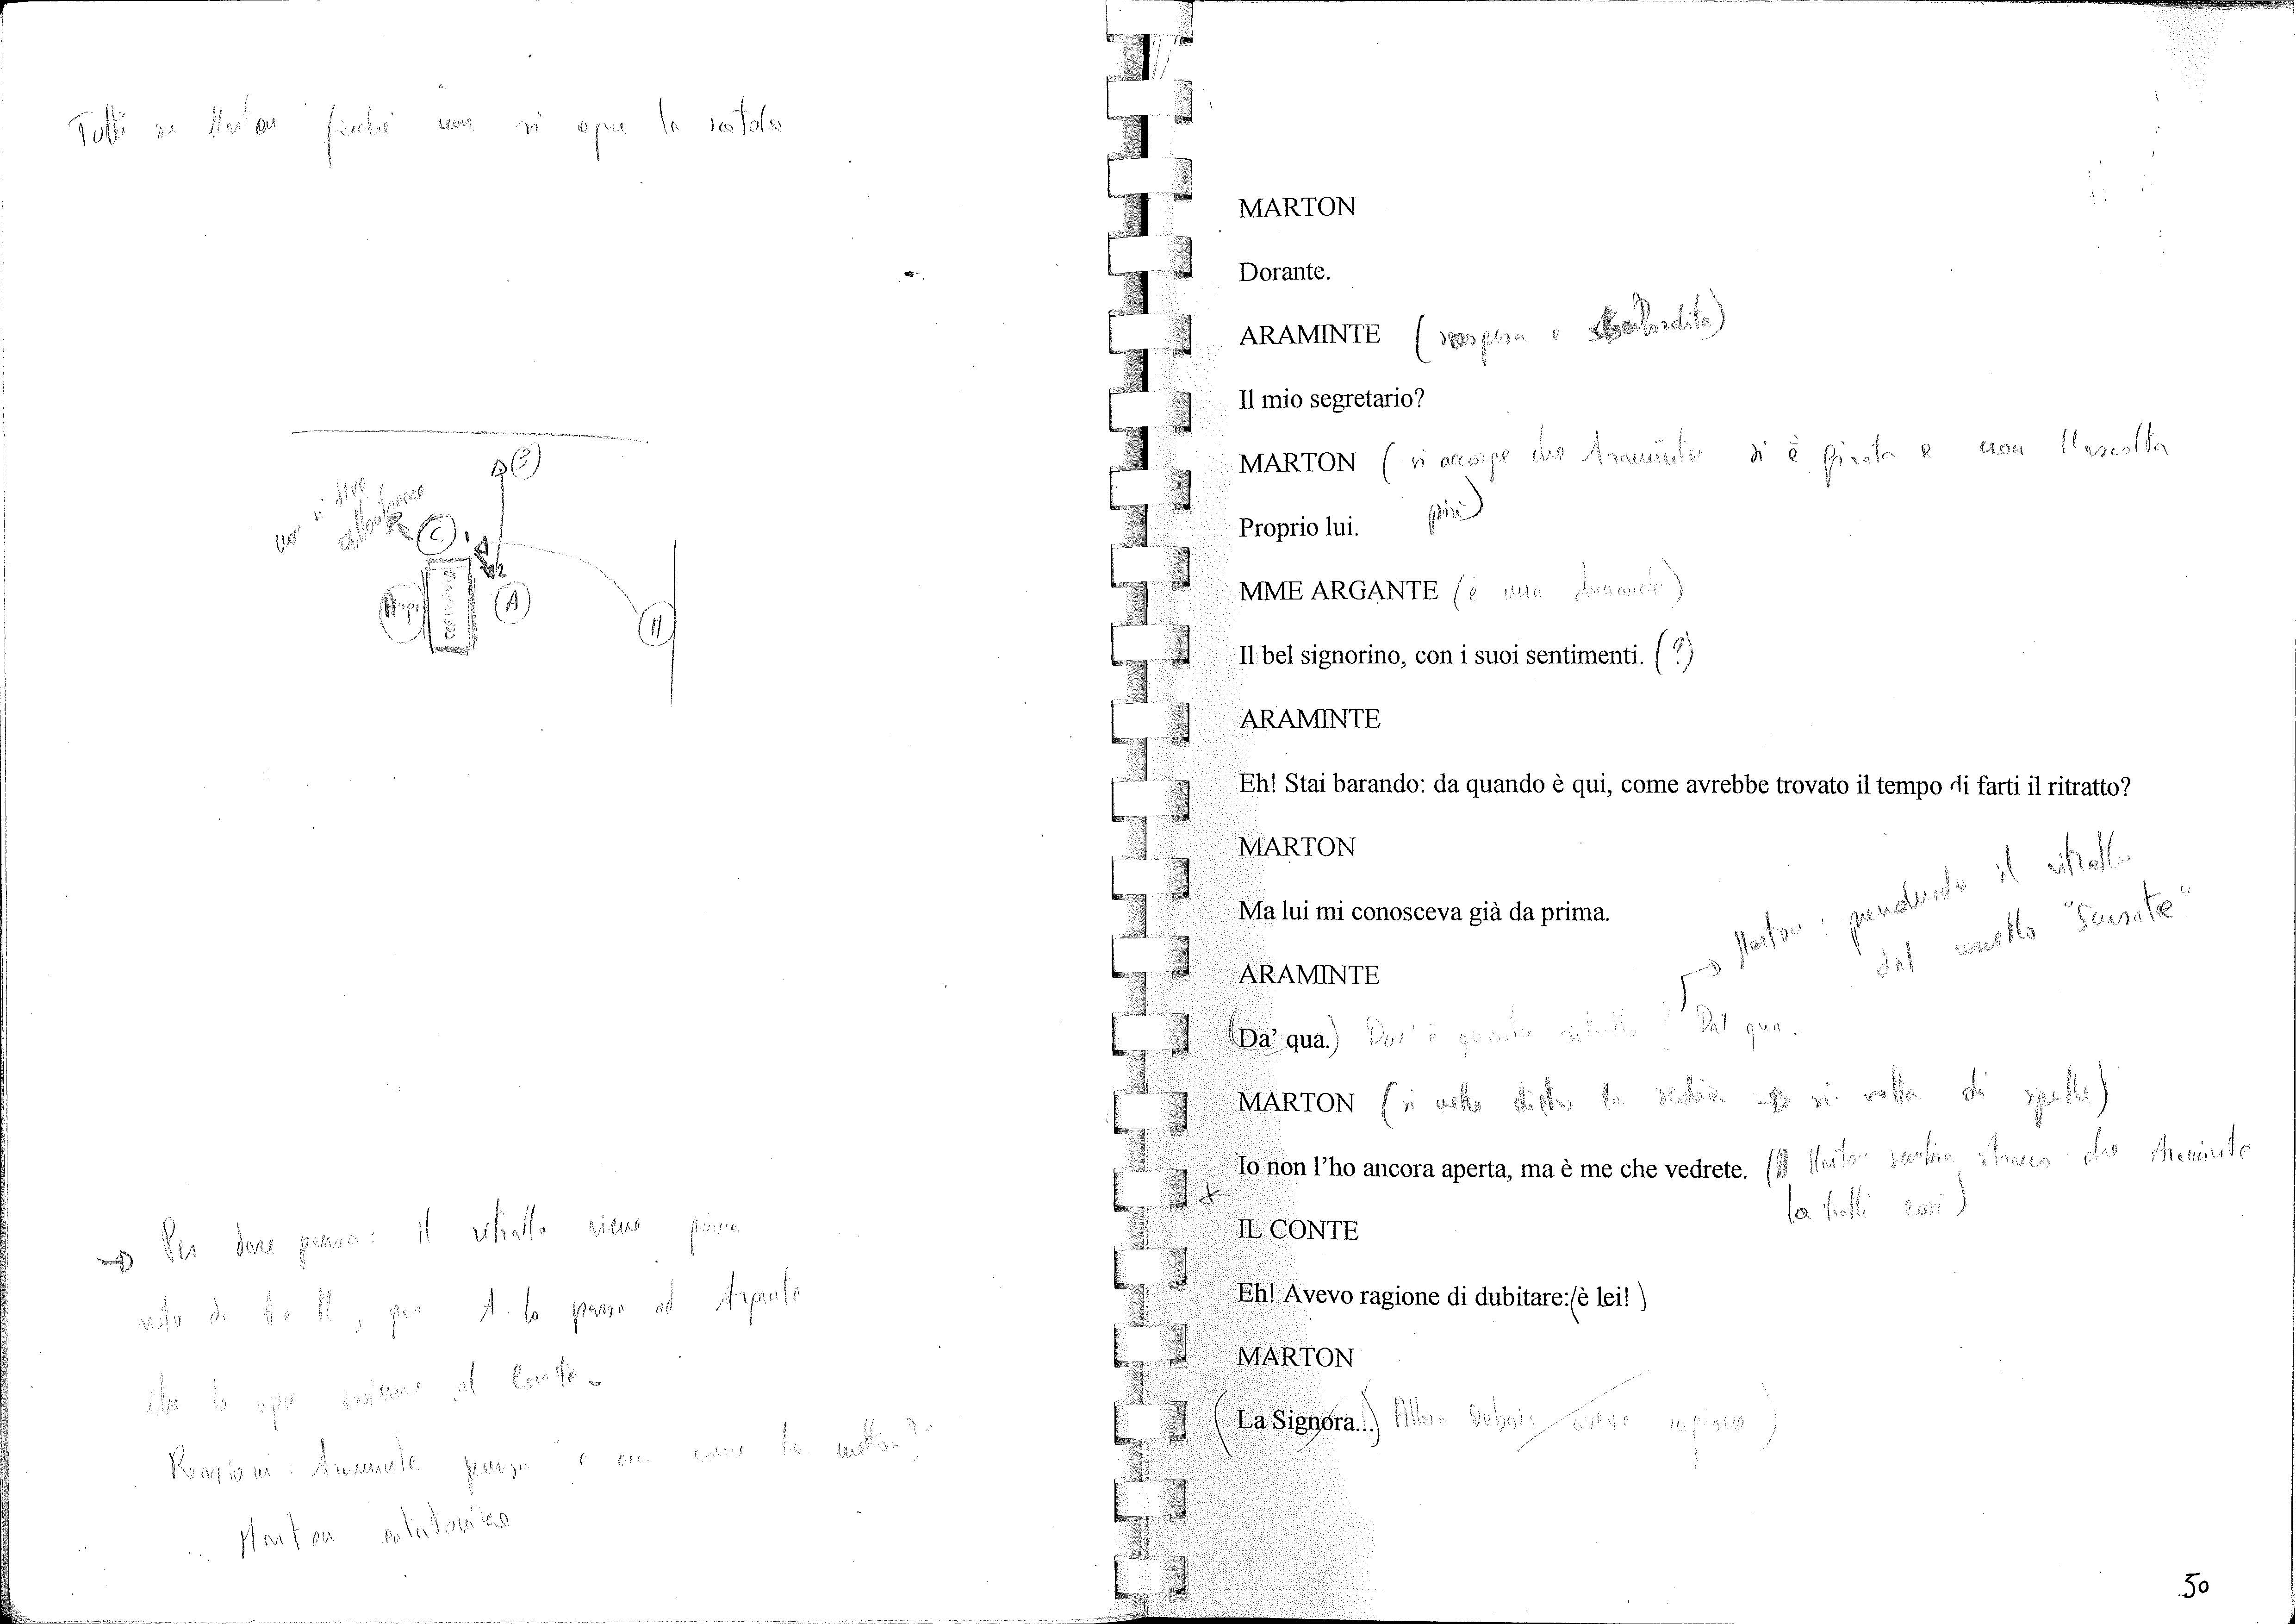 Tutti su Marton finché non si apre la scatola
3
non si deve
allontanare
C
1
2
A
M
→ Per dare pausa: il ritratto viene prima
visto da A e M, poi A. lo passa ad Argante
che lo apre insieme al Conte -
Reazioni: Araminte pensa "e ora come la metto?"
Marton catatonica
MARTON
Dorante.
ARAMINTE (sorpresa e sbalordita)
Il mio segretario?
MARTON (si accorge che Araminte si è girata e non l'ascolta
più)
Proprio lui.
MME ARGANTE (è una domanda)
Il bel signorino, con i suoi sentimenti. (?)
ARAMINTE
Eh! Stai barando: da quando è qui, come avrebbe trovato il tempo di farti il ritratto?
MARTON
Ma lui mi conosceva già da prima.
→ Marton: prendendo il ritratto
dal "Scusate"
ARAMINTE
(Da' qua.) Dov'è questo ritratto? Da' qua -
MARTON (si mette dietro la sedia → si volta di spalle)
Io non l'ho ancora aperta, ma è me che vedrete. (A Marton sembra strano che Araminte
la tratti così)
IL CONTE
Eh! Avevo ragione di dubitare:(è lei!)
MARTON
(La Signora...) Allora Dubois aveva ragione)
50